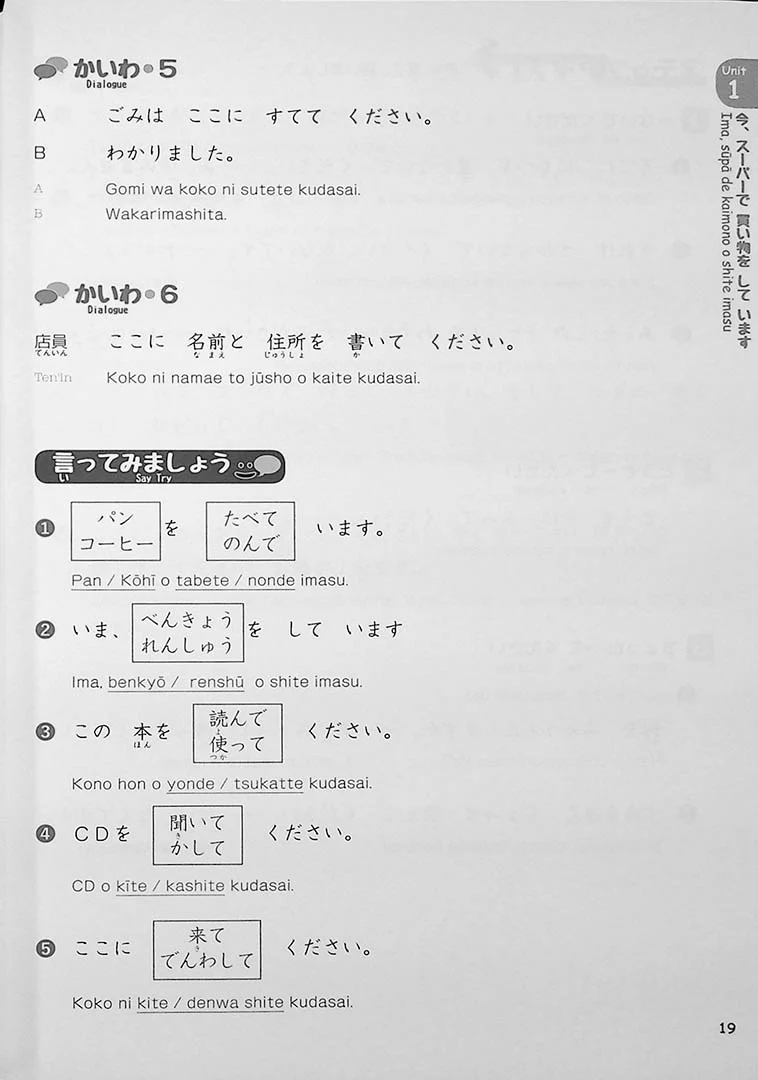 かいわ・5
Dialogue
A ごみは ここに すてて ください。
B わかりました。
A Gomi wa koko ni sutete kudasai.
B Wakarimashita.
かいわ・6
Dialogue
店員 ここに 名前と 住所を 書いて ください。
てんいん なまえ じゅうしょ か
Ten'in Koko ni namae to jūsho o kaite kudasai.
言ってみましょう
い Say Try
1 パン を たべて います。
コーヒー のんで
Pan / Kōhī o tabete / nonde imasu.
2 いま、 べんきょう を して います
れんしゅう
Ima, benkyō / renshū o shite imasu.
3 この 本を 読んで ください。
ほん よ
使って
つか
Kono hon o yonde / tsukatte kudasai.
4 CDを 聞いて ください。
き
かして
CD o kīte / kashite kudasai.
5 ここに 来て ください。
き
でんわして
Koko ni kite / denwa shite kudasai.
Unit
1
今、スーパーで 買い物を して います
Ima, sūpā de kaimono o shite imasu
19